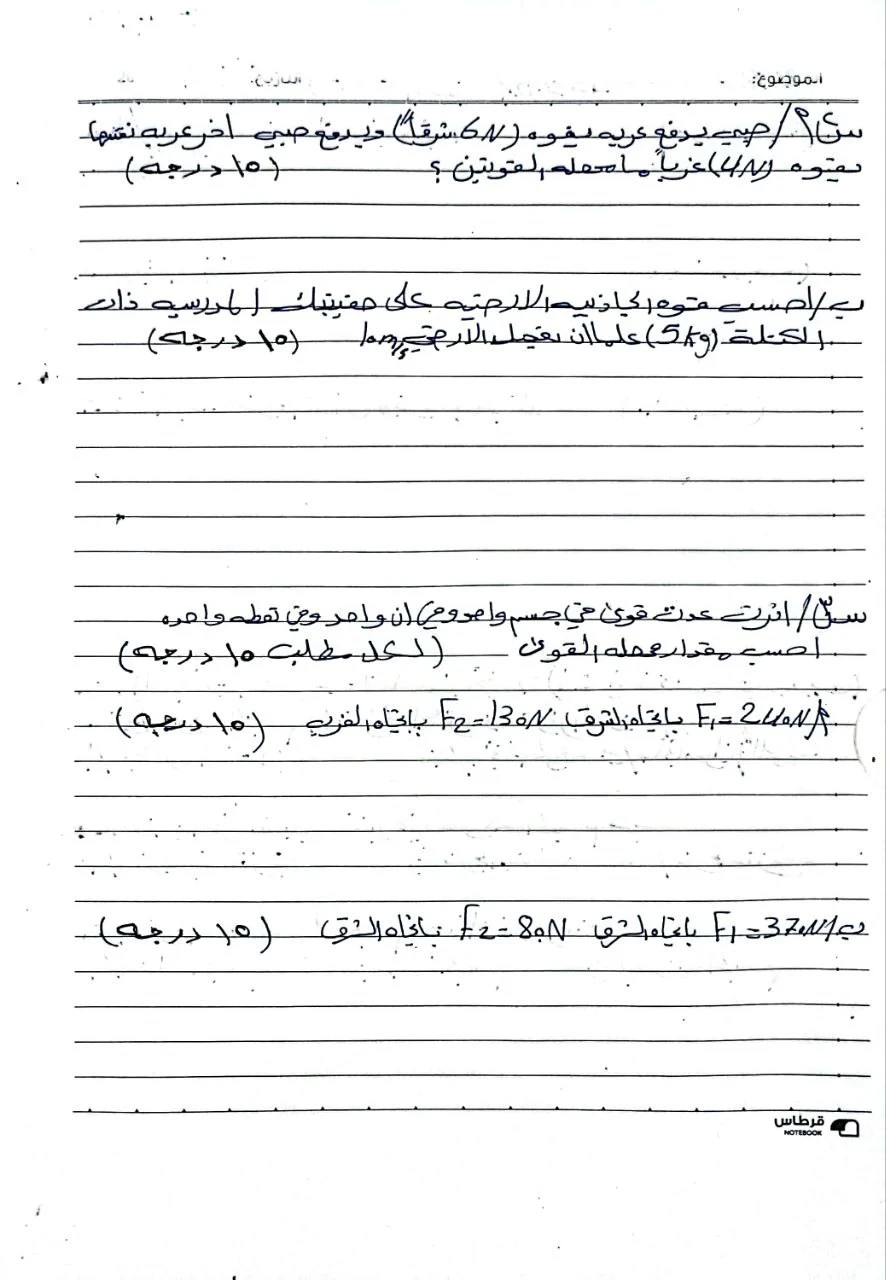 الموضوع: التاريخ:
س٤/ أ/ صبي يدفع عربه بقوه (6N شرقا") ويدفع صبي اخر عربه نفسها
بقوه (4N) غرباً ما محصله القوتين ؟ (١٥ درجه)
ب/ احسب قوه الجاذبيه الارضيه على حقيبتك المدرسيه ذات
الكتلة (5kg) علما ان تعجيل الارضي 10m/s (١٥ درجه)
س٣/ اثرت عدت قوى في جسم واحد وفي ان واحد وفي نقطه واحده
احسب مقدار محصله القوى (لكل مطلب ١٥ درجه)
أ/ F1=240N باتجاه الشرق F2=130N باتجاه الغرب (١٥ درجه)
ب/ F1=370N باتجاه الشرق F2=80N باتجاه الشرق (١٥ درجه)
قرطاس
NOTEBOOK